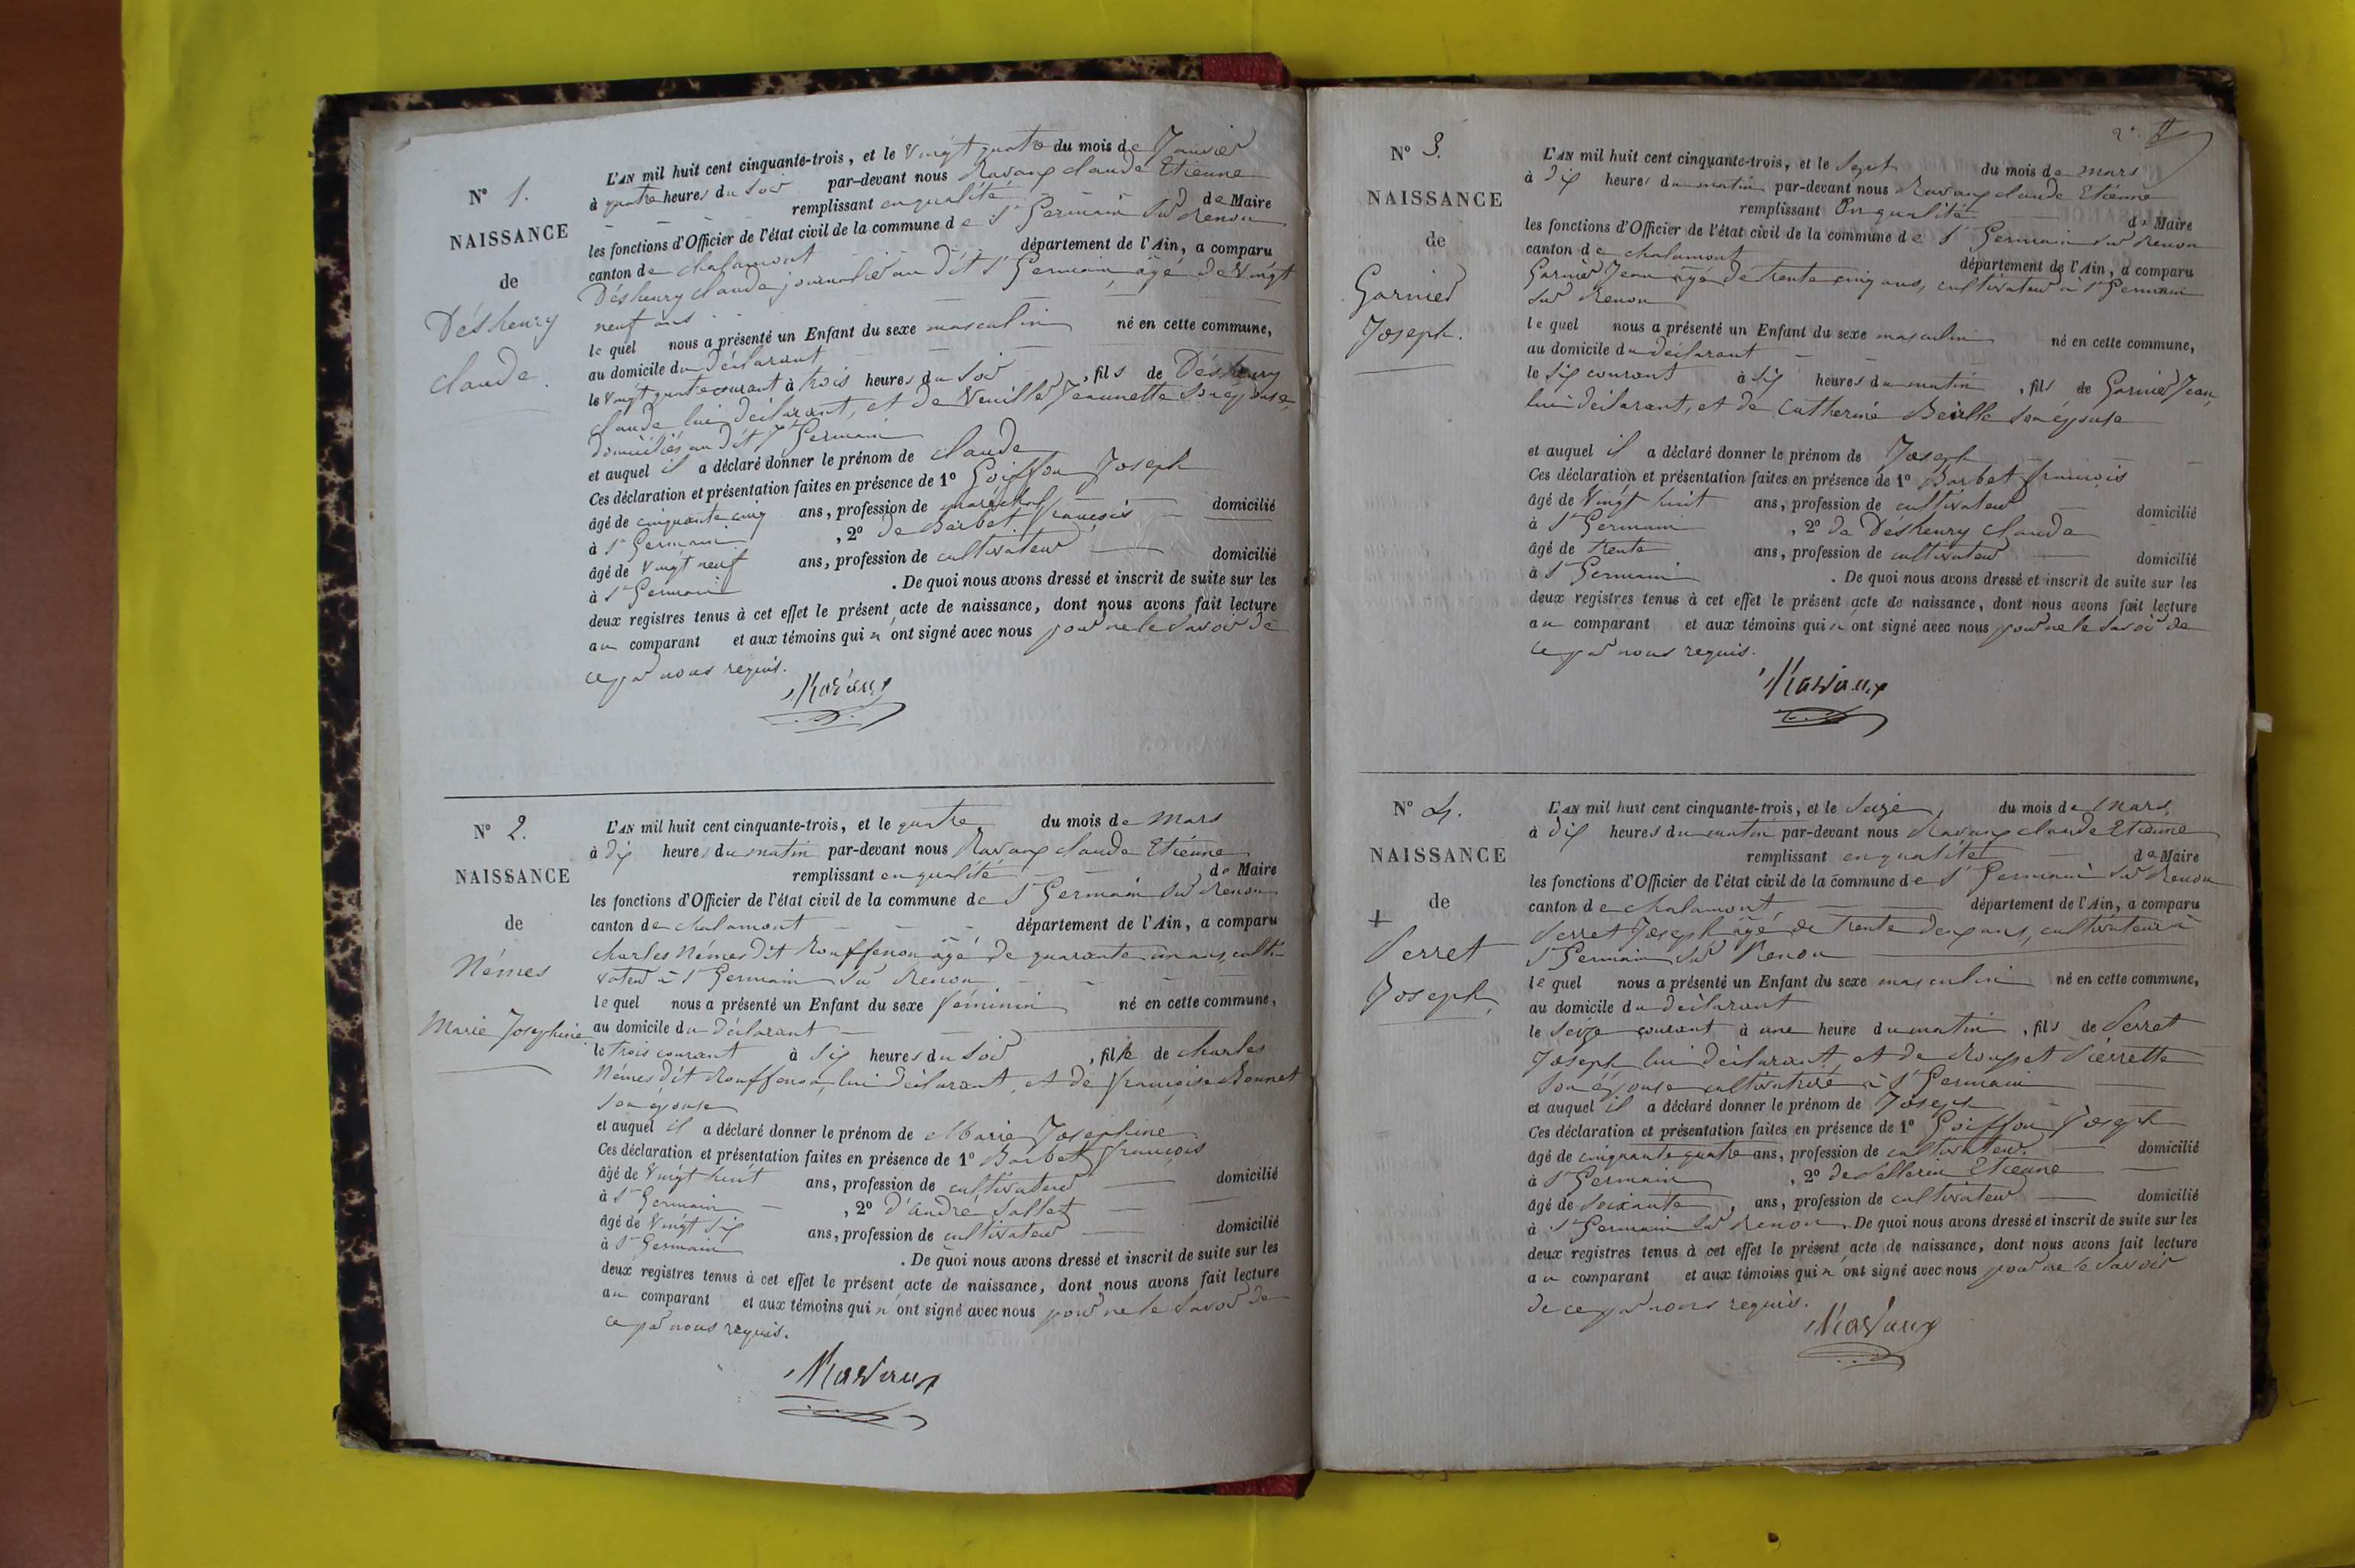 N° 1.
NAISSANCE
de
Déshenry
Claude.
L'AN mil huit cent cinquante-trois, et le Vingt quatre du mois de Janvier
à quatre heures du Soir par-devant nous Ravaux claude Etienne
remplissant en qualité de Maire
les fonctions d'Officier de l'état civil de la commune de St Germain sur Renon
canton de chalamont département de l'Ain, a comparu
Déshenry claude journalier au dit St Germain, âgé de Vingt
neuf ans
le quel nous a présenté un Enfant du sexe masculin né en cette commune,
au domicile du déclarant
le Vingt quatre courant à trois heures du Soir, fils de Déshenry
claude lui déclarant, et de Jeannette son épouse,
domiciliés au dit St Germain
et auquel il a déclaré donner le prénom de claude
Ces déclaration et présentation faites en présence de 1° Goiffon Joseph
âgé de cinquante cinq ans, profession de maréchal domicilié
à St Germain, 2° de Barbet françois
âgé de Vingt neuf ans, profession de cultivateur domicilié
à St Germain. De quoi nous avons dressé et inscrit de suite sur les
deux registres tenus à cet effet le présent acte de naissance, dont nous avons fait lecture
au comparant et aux témoins qui n'ont signé avec nous pour ne le savoir de
ce par nous requis.
Ravaux
N° 2.
NAISSANCE
de
Némes
Marie Josephine
L'AN mil huit cent cinquante-trois, et le quatre du mois de Mars
à dix heures du matin par-devant nous Ravaux claude Etienne
remplissant en qualité de Maire
les fonctions d'Officier de l'état civil de la commune de St Germain sur Renon
canton de chalamont département de l'Ain, a comparu
charles Némes dit Rouffenon âgé de quarante un ans, culti-
vateur à St Germain sur Renon
le quel nous a présenté un Enfant du sexe féminin né en cette commune,
au domicile du déclarant
le trois courant à six heures du Soir, fille de charles
Némes dit Rouffenon, lui déclarant, et de françoise Bonnet
son épouse
et auquel il a déclaré donner le prénom de Marie Josephine
Ces déclaration et présentation faites en présence de 1° Barbet françois
âgé de Vingt huit ans, profession de cultivateur domicilié
à St Germain, 2° d'andré Sallet
âgé de Vingt six ans, profession de cultivateur domicilié
à St Germain. De quoi nous avons dressé et inscrit de suite sur les
deux registres tenus à cet effet le présent acte de naissance, dont nous avons fait lecture
au comparant et aux témoins qui n'ont signé avec nous pour ne le savoir de
ce par nous requis.
Ravaux
N° 3.
NAISSANCE
de
Garnier
Joseph.
L'AN mil huit cent cinquante-trois, et le Sept du mois de mars
à dix heures du matin par-devant nous Ravaux claude Etienne
remplissant En qualité de Maire
les fonctions d'Officier de l'état civil de la commune de St Germain sur Renon
canton de chalamont département de l'Ain, a comparu
Garnier Jean âgé de trente cinq ans, cultivateur à St Germain
sur Renon
le quel nous a présenté un Enfant du sexe masculin né en cette commune,
au domicile du déclarant
le six courant à six heures du matin, fils de Garnier Jean,
lui déclarant, et de Catherine son épouse
et auquel il a déclaré donner le prénom de Joseph
Ces déclaration et présentation faites en présence de 1° Barbet françois
âgé de Vingt huit ans, profession de cultivateur domicilié
à St Germain, 2° de Déshenry Claude
âgé de trente ans, profession de cultivateur domicilié
à St Germain. De quoi nous avons dressé et inscrit de suite sur les
deux registres tenus à cet effet le présent acte de naissance, dont nous avons fait lecture
au comparant et aux témoins qui n'ont signé avec nous pour ne le savoir de
ce par nous requis.
Ravaux
N° 4.
NAISSANCE
de
+
Perret
Joseph
L'AN mil huit cent cinquante-trois, et le Seize, du mois de Mars,
à dix heures du matin par-devant nous Ravaux claude Etienne
remplissant en qualité de Maire
les fonctions d'Officier de l'état civil de la commune de St Germain sur Renon
canton de chalamont, département de l'Ain, a comparu
Perret Joseph âgé de trente deux ans, cultivateur à
St Germain sur Renon
le quel nous a présenté un Enfant du sexe masculin né en cette commune,
au domicile du déclarant
le Seize courant à une heure du matin, fils de Perret
Joseph lui déclarant, et de Rousset Pierrette
son épouse cultivatrice à St Germain
et auquel il a déclaré donner le prénom de Joseph
Ces déclaration et présentation faites en présence de 1° Goiffon Joseph
âgé de cinquante quatre ans, profession de cultivateur. domicilié
à St Germain, 2° de Pellerin Etienne
âgé de soixante, ans, profession de cultivateur domicilié
à St Germain sur Renon. De quoi nous avons dressé et inscrit de suite sur les
deux registres tenus à cet effet le présent acte de naissance, dont nous avons fait lecture
au comparant et aux témoins qui n'ont signé avec nous pour ne le savoir
de ce par nous requis.
Ravaux